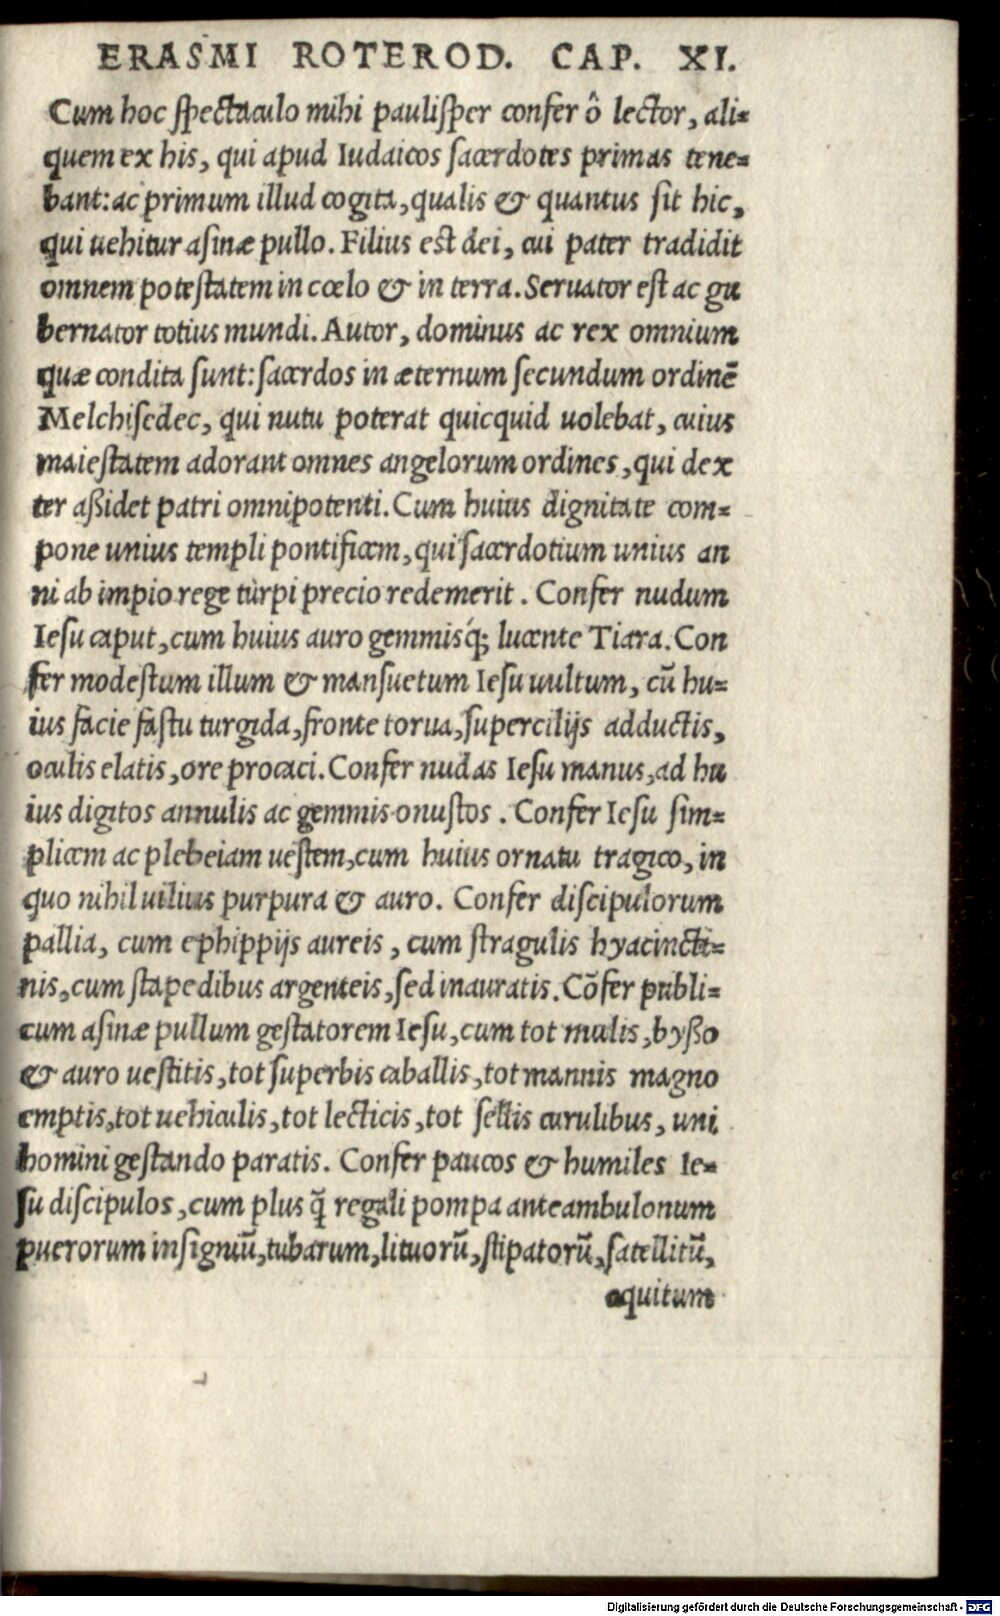 ERASMI ROTEROD. CAP. XI.
Cum hoc ſpectaculo mihi pauliſper confer ô lector, ali=
quem ex his, qui apud Iudaicos ſacerdotes primas tene=
bant: ac primum illud cogita, qualis & quantus ſit hic,
qui uehitur aſinæ pullo. Filius est dei, cui pater tradidit
omnem poteſtatem in cœlo & in terra. Seruator eſt ac gu
bernator totius mundi. Autor, dominus ac rex omnium
quæ condita ſunt: ſacerdos in æternum ſecundum ordinē
Melchiſedec, qui nutu poterat quicquid uolebat, cuius
maieſtatem adorant omnes angelorum ordines, qui dex
ter aßidet patri omnipotenti. Cum huius dignitate com=
pone unius templi pontificem, qui ſacerdotium unius an
ni ab impio rege turpi precio redemerit. Confer nudum
Ieſu caput, cum huius auro gemmisq́; lucente Tiara. Con
fer modeſtum illum & manſuetum Ieſu uultum, cū hu=
ius facie faſtu turgida, fronte torua, ſupercilijs adductis,
oculis elatis, ore procaci. Confer nudas Ieſu manus, ad hu
ius digitos annulis ac gemmis onuſtos. Confer Ieſu ſim=
plicem ac plebeiam ueſtem, cum huius ornatu tragico, in
quo nihil uilius purpura & auro. Confer diſcipulorum
pallia, cum ephippijs aureis, cum ſtragulis hyacincti=
nis, cum ſtapedibus argenteis, ſed inauratis. Cōfer publi=
cum aſinæ pullum geſtatorem Ieſu, cum tot mulis, byßo
& auro ueſtitis, tot ſuperbis caballis, tot mannis magno
emptis, tot uehiculis, tot lecticis, tot ſellis curulibus, uni
homini geſtando paratis. Confer paucos & humiles Ie=
ſu diſcipulos, cum plus q̃ regali pompa anteambulonum
puerorum inſigniū, tubarum, lituorū, ſtipatorū, ſatellitū,
equitum
Digitalisierung gefördert durch die Deutsche Forschungsgemeinschaft - DFG